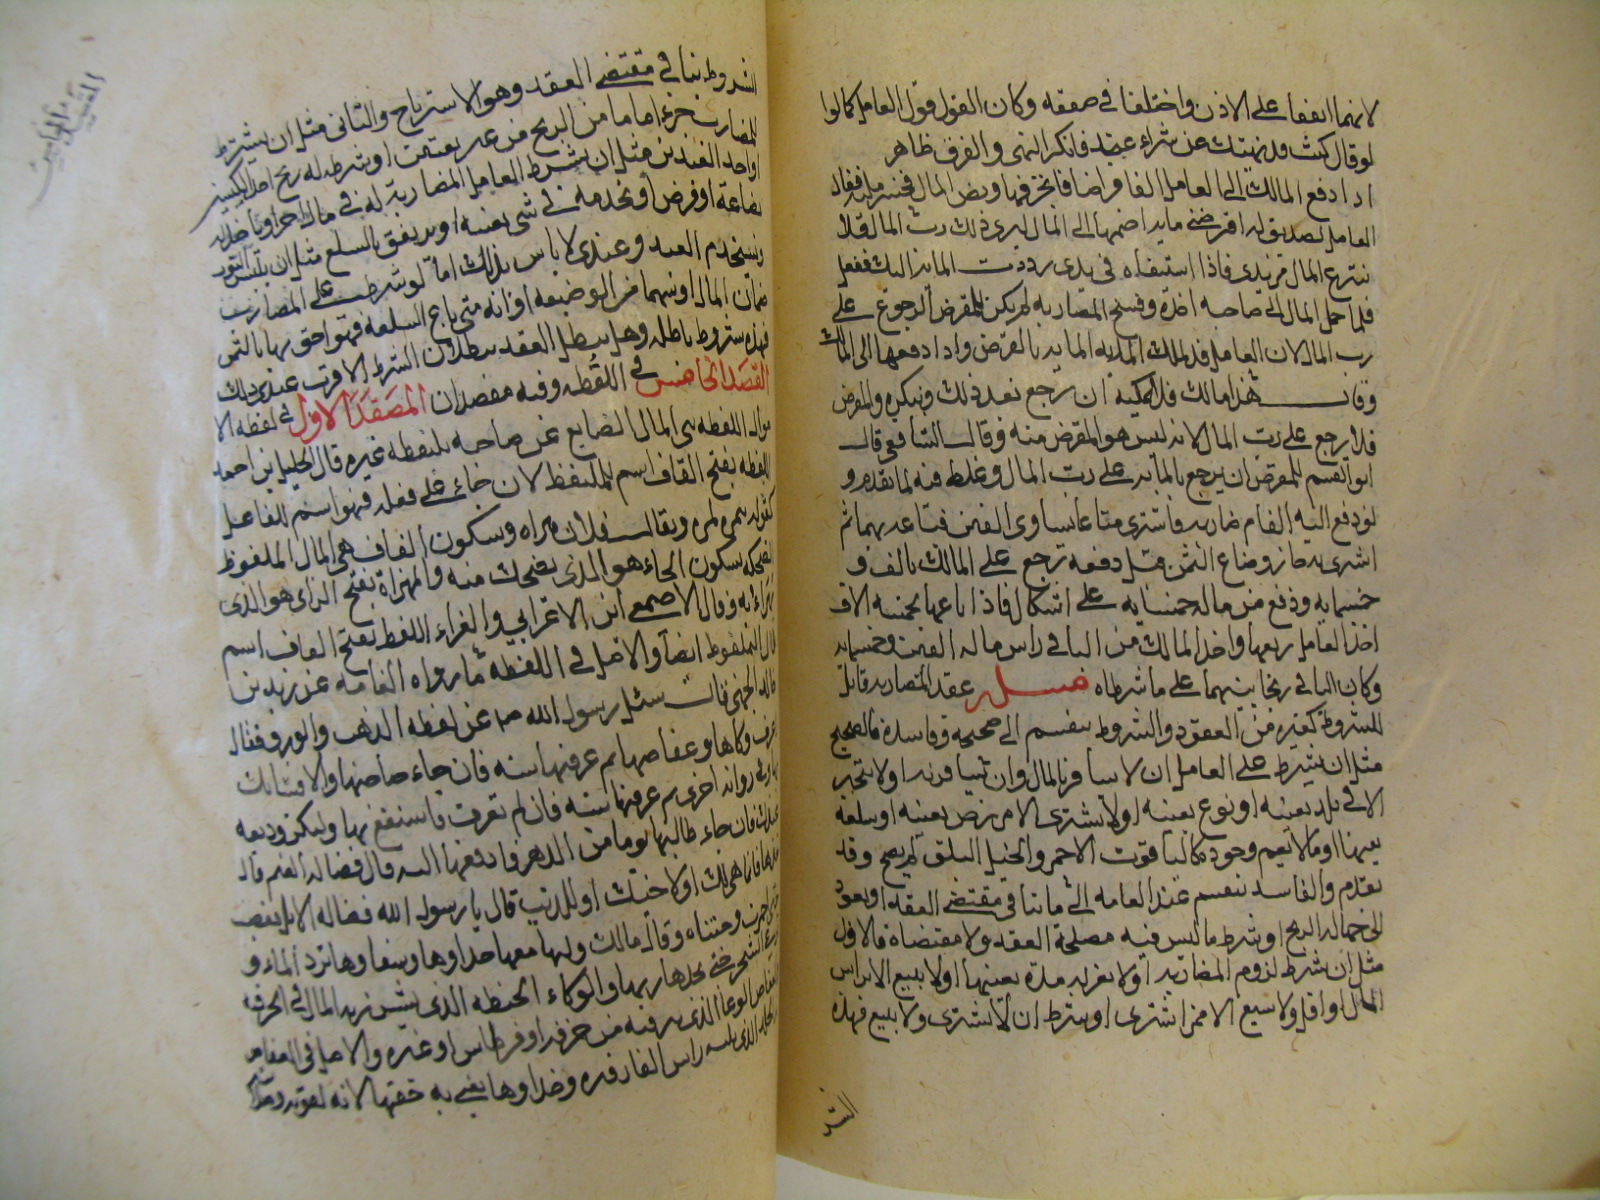 لانهما اتفقا على الاذن واختلفا في صفقه وكان القول قول العامل كما لوا
لو قال كنت قد نهيتك عن شراء عبد فانكر النهى والفرق ظاهر
اذا دفع المالك الى العامل الفا قراضا فاتجر فيها ونض المال فخسر مايه فقال
العامل لصديق له اقرضني مايه اضمها الى المال ليرى ذلك رب المال فلا
ينتزع المال من يدى فاذا استبقاه في يدى رددت المايه اليك ففعل
فلما حمل المال الى صاحبه اخذه وفسخ المضاربه لم يكن للمقرض الرجوع على
رب المال لان العامل قد ملك المايه بالقرض واذا دفعها الى المالك
وقال هذا مالك فلا يمكنه ان يرجع بعد ذلك وينكره والمقرض
فلا يرجع على رب المال لانه ليس هو المقرض منه وقال الشافعي قال
ابو القسم للمقرض ان يرجع بالمايه على رب المال وغلط فيه لما تقدم و
لو دفع اليه الفا مضاربه فاشترى متاعا يساوى الفين فباعه بهما ثم
اشترى به وضاع الثمن قبل دفعه رجع على المالك بالف و
خمسمايه ودفع من ماله خمسمايه على اشكال فاذا باعها بخمسه الاف
اخذ العامل ربعها واخذ المالك من الباقي راس ماله الفين وخمسمايه
وكان الباقي ربحا بينهما على ما شرطاه مسله عقد المضاربه قابل
للشروط كغيره من العقود والشروط ينقسم الى صحيحه وفاسده فالصحيح
مثل ان يشترط على العامل ان لا يسافر بالمال وان يسافر به او لا يتجر
الا في بلد بعينه او نوع بعينه او لا يشترى الا من رجل بعينه او سلعه
بعينها او ما لا يعم وجوده كالياقوت الاحمر والخيل البلق لم يصح وقد
تقدم والفاسد ينقسم عند العامه الى ما ينافي مقتضى العقد او يعود
الى جهاله الربح او شرط ما ليس فيه مصلحة العقد ولا مقتضاه فالاول
مثل ان شرط لزوم المضاربه او لا يعزله مده بعينها او لا يبيع الا براس
المال او اقل ولا يبيع الا ممن اشترى او شرط ان لا يشترى ولا يبيع فهذه
الشروط
الشروط ينافي مقتضى العقد وهو الاسترباح والثاني مثل ان يشترط
للمضارب جزءا ما من الربح من غير تعيين او شرط له ربح احد الكيسين
او احد العبدين مثل ان يشترط العامل المضاربة له في مال اخر او ياخذه
بضاعة او قرض او يخدمه في شى بعينه او يرتفق بالسلع مثل ان يلبس الثوب
ويستخدم العبد وعندي لا باس بذلك اما لو شرط على المضارب
ضمان المال او سهما من الوضيعه او انه متى باع السلعه فهو احق بها بالثمن
فهذه شروط باطله وهل يبطل العقد ببطلان الشرط الاقرب عندي ذلك
المقصد الخامس في اللقطه وفيه مقصدان المقصد الاول في لقطه الا
موال اللقطه هى المال الضايع عن صاحبه يلتقطه غيره قال الخليل ابن احمد
اللقطه بفتح القاف اسم للملتقط لان ما جاء على فعله فهو اسم للفاعل
كقولهم همزه لمزه ويقال فلان هزاه وسكون القاف هى المال الملقوط
كضحكه بسكون الحاء هو الذي يضحك منه والهزاة بفتح الزاى هو الذي
يهزاء به وقال الاصمعى ابن الاعرابي والفراء اللقط بفتح القاف اسم
المال الملقوط ايضا والاصل في اللقطه ما رواه العامه عن زيد بن
خالد الجهني قال سئل رسول الله ص عن لقطه الذهب والورق فقال
اعرف وكاها وعفاصها ثم عرفها سنه فان جاء صاحبها والا فشانك
بها وفي روايه اخرى ثم عرفها سنه فان لم تعرف فاستنفع بها وليكن وديعه
عندك فان جاء طالبها يوما من الدهر فادفعها اليه قال فضاله الغنم قال
خذها فانما هى لك او لاخيك او للذيب قال يا رسول الله فضاله الابل فغضب
حتى احمرت وجنتاه وقال مالك ولها معها حذاوها وسقاوها ترد الماء و
ترعى الشجر حتى يجدها ربها والوكاء الخيط الذي يشد به المال في الخرقه
والعفاص الوعا الذي هى فيه من خرقه او قرطاس او غيره والاصل في العفاص
الجلد الذي يلبسه راس القاروره وحذاوها يعنى به خفها لانه لقوته